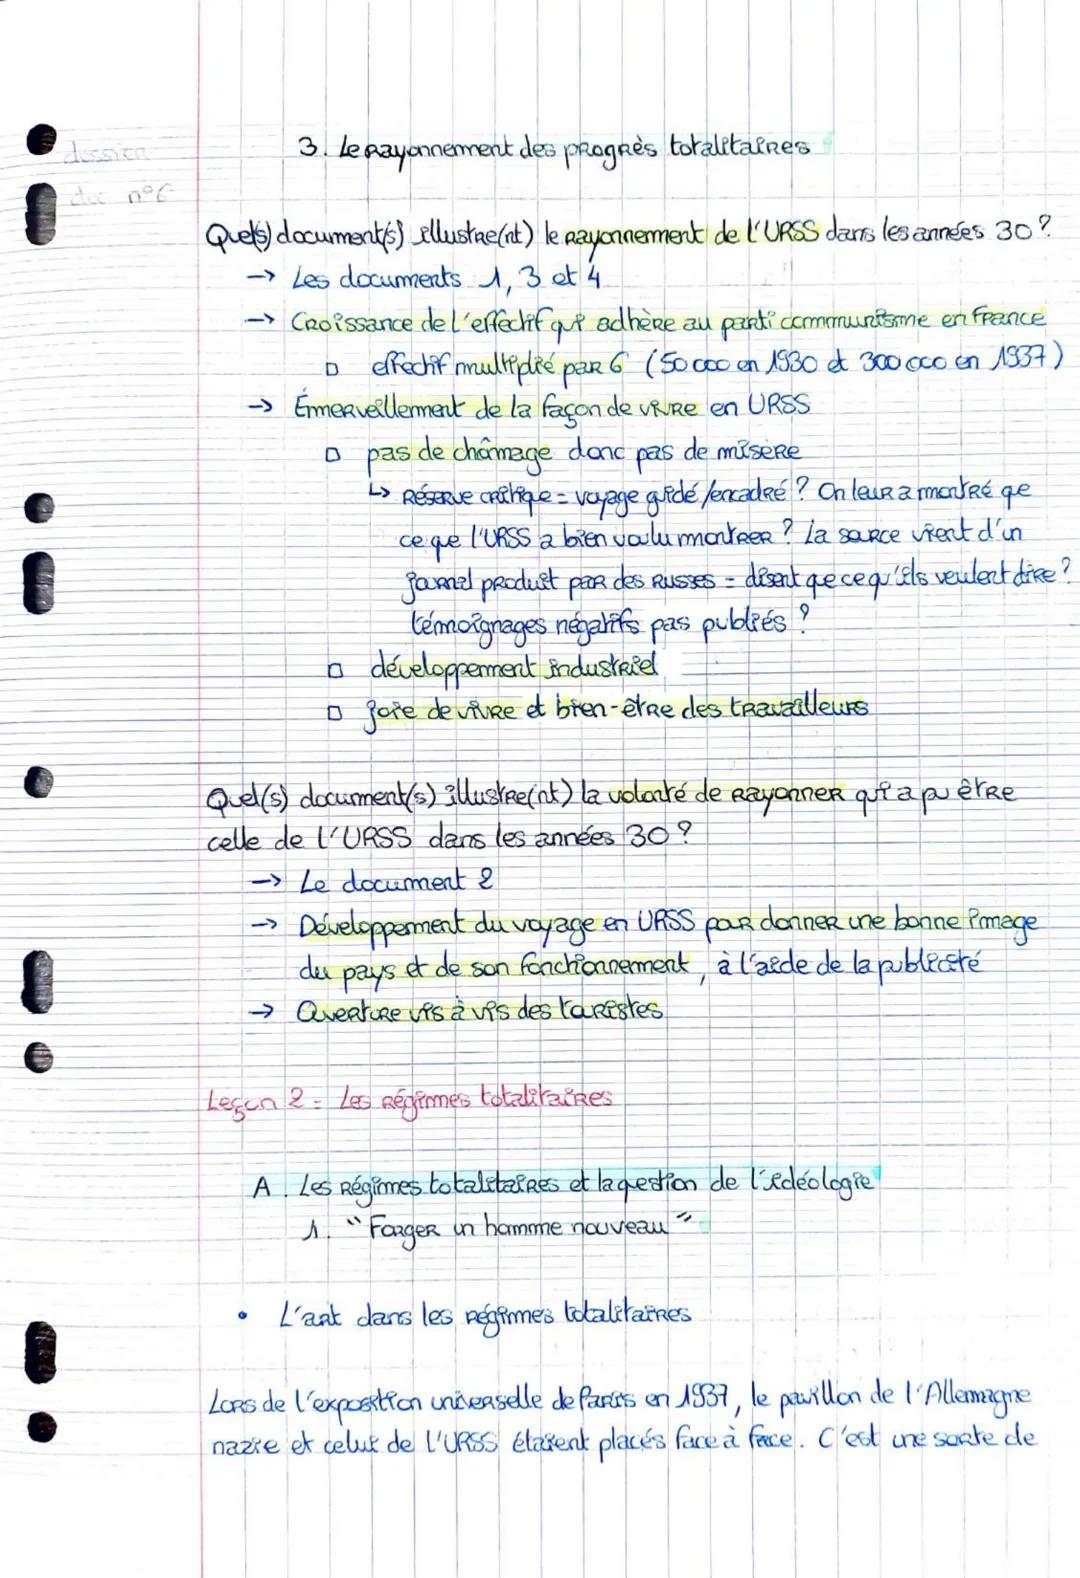 3. Le rayonnement des progrès totalitaires
dossier
doc n°6
Quel(s) document(s) illustre(nt) le rayonnement de l'URSS dans les années 30 ?
→ Les documents 1, 3 et 4
→ Croissance de l'effectif qui adhère au parti communisme en France
▫ effectif multiplié par 6 (50 000 en 1930 et 300 000 en 1937)
→ Émerveillement de la façon de vivre en URSS
▫ pas de chômage donc pas de misère
↳ Réserve critique = voyage guidé/encadré ? On leur a montré que
ce que l'URSS a bien voulu montrer ? La source vient d'un
journal produit par des russes = disent que ce qu'ils veulent dire ?
témoignages négatifs pas publiés ?
▫ développement industriel
▫ joie de vivre et bien-être des travailleurs
Quel(s) document(s) illustre(nt) la volonté de rayonner qui a pu être
celle de l'URSS dans les années 30 ?
→ Le document 2
→ Développement du voyage en URSS pour donner une bonne image
du pays et de son fonctionnement, à l'aide de la publicité
→ Ouverture vis à vis des touristes
Leçon 2 = Les régimes totalitaires
A. Les régimes totalitaires et la question de l'idéologie
1. "Forger un homme nouveau"
• L'art dans les régimes totalitaires
Lors de l'exposition universelle de Paris en 1937, le pavillon de l'Allemagne
nazie et celui de l'URSS étaient placés face à face. C'est une sorte de